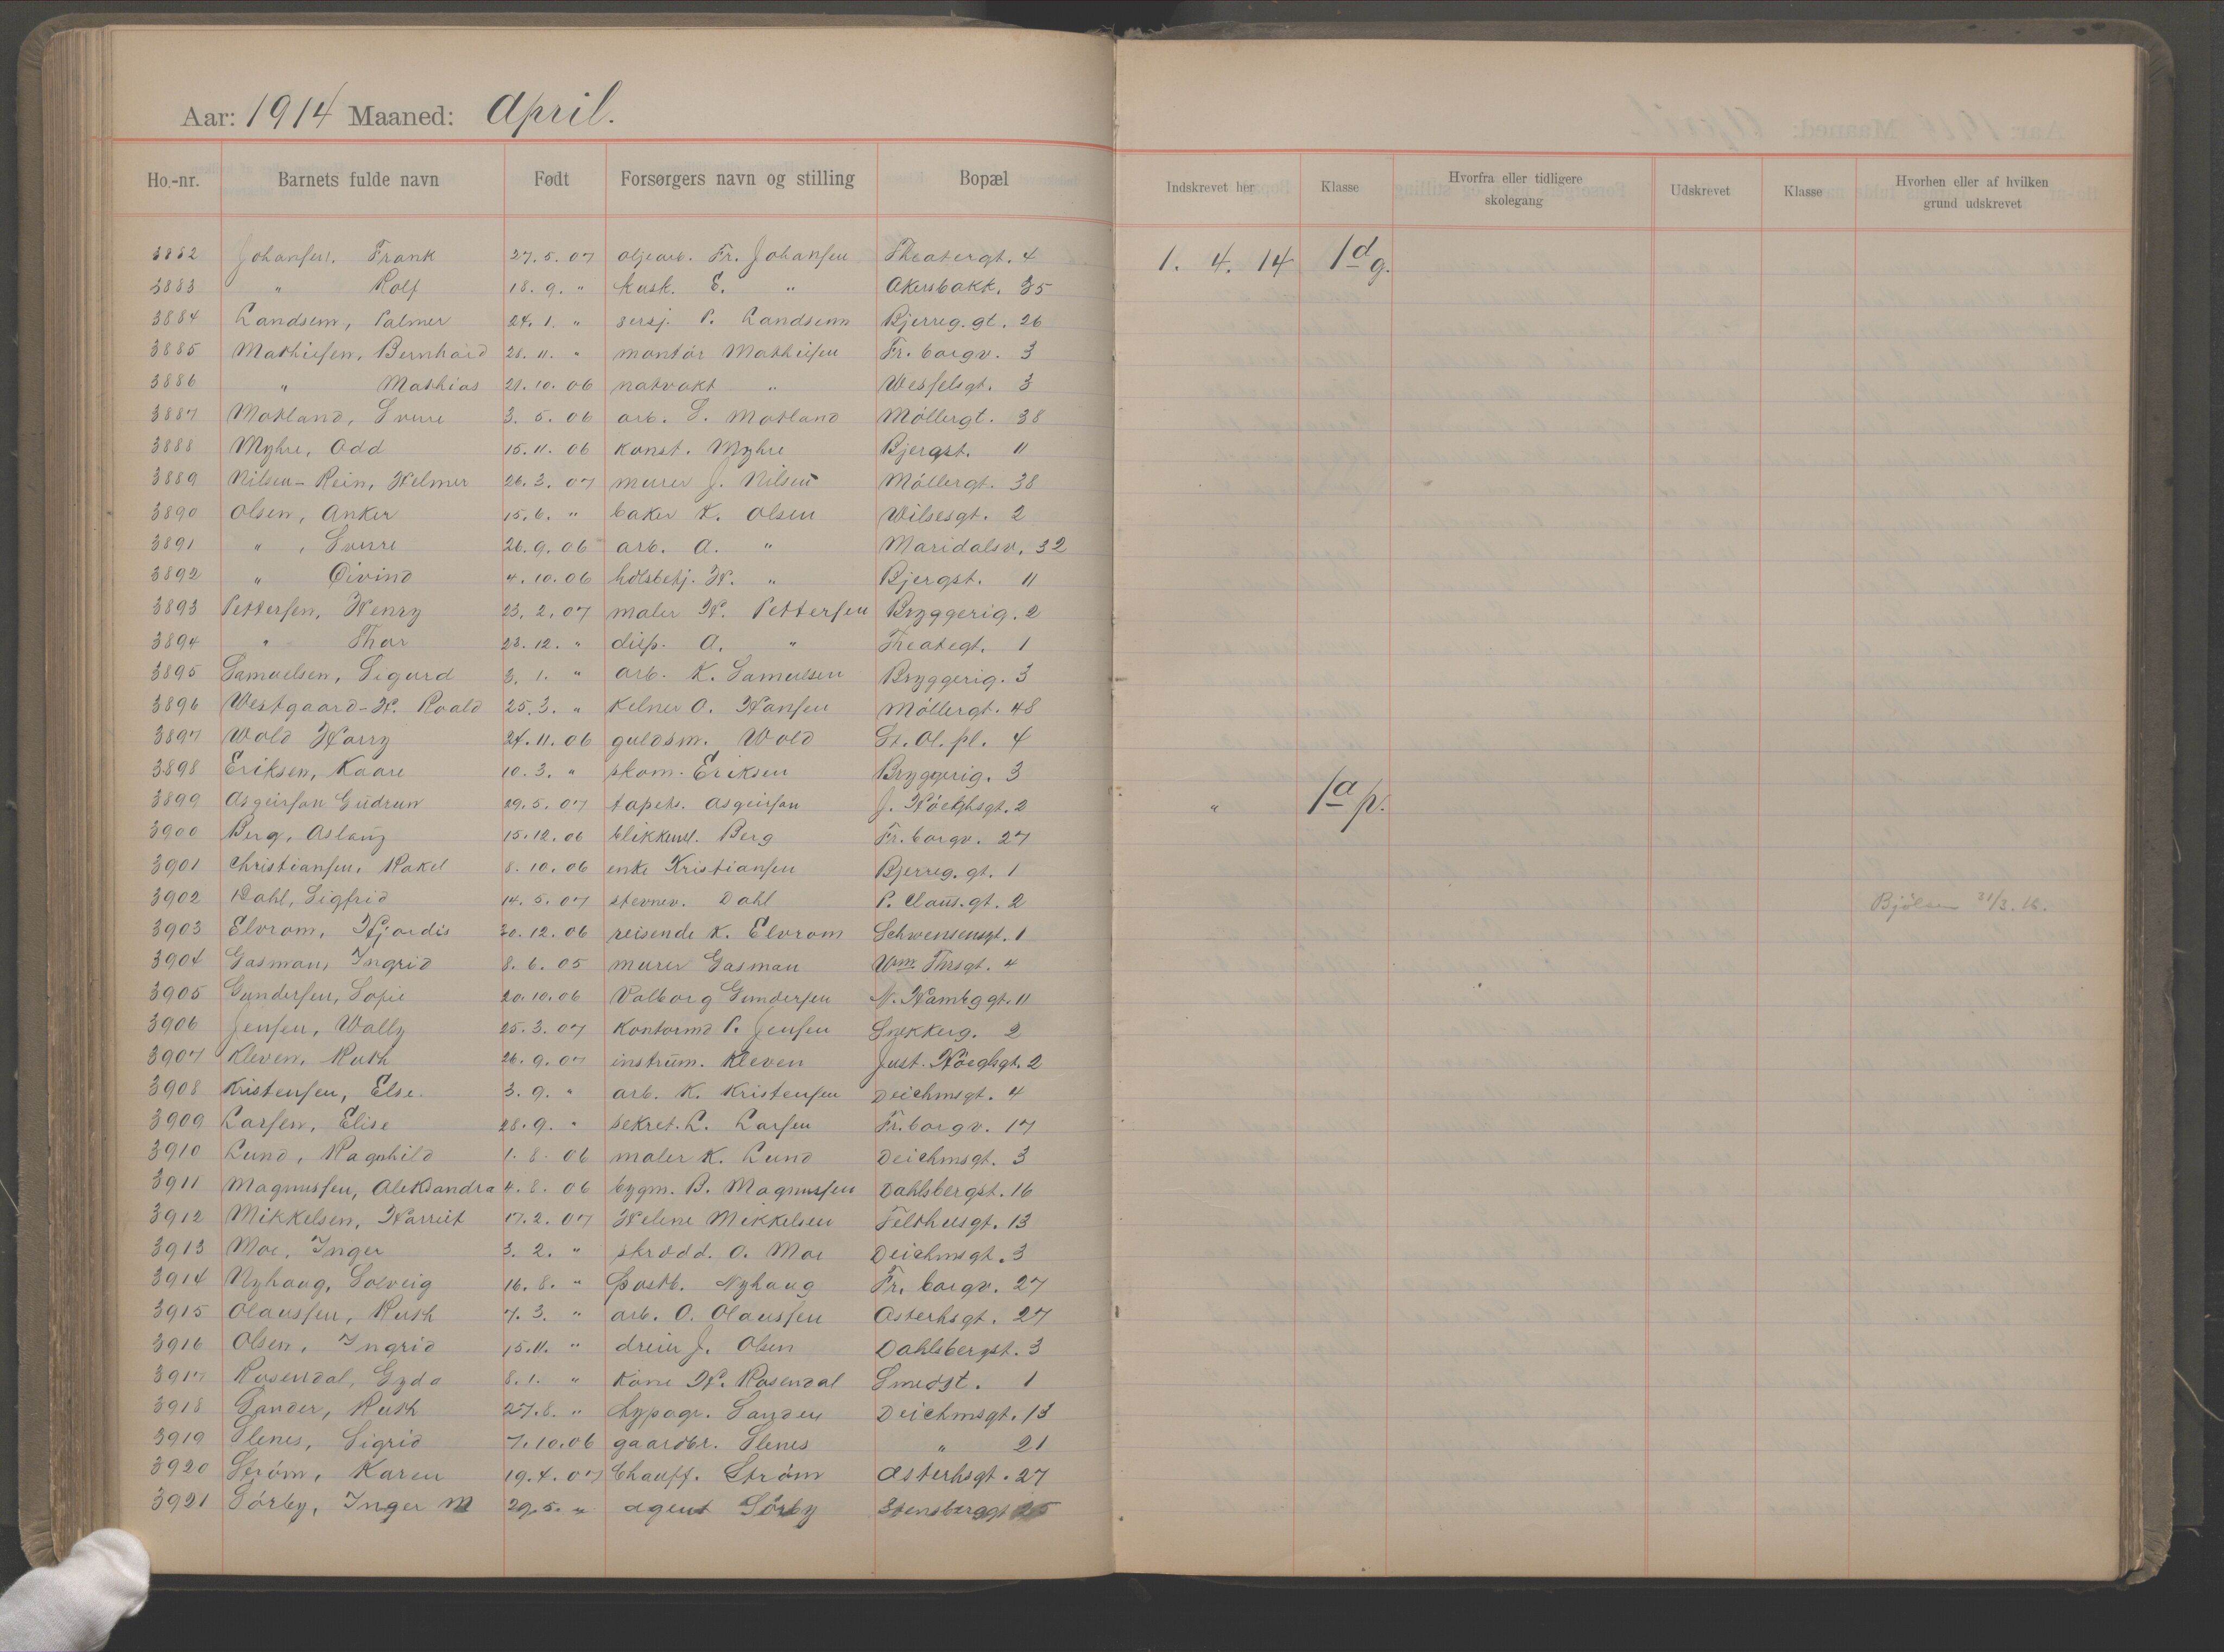 Aar: 1914 Maaned: April.
Ho.-nr. Barnets fulde navn Født Forsørgers navn og stilling Bopæl Indskrevet her Klasse Hvorfra eller tidligere skolegang Udskrevet Klasse Hvorhen eller af hvilken grund udskrevet
3882 Johansen, Frank 27.5.07 oljearb. Fr. Johansen Theatergt. 4 1. 4. 14 1d g.
3883 " Rolf 18.9. " kusk. E. " Akersbakk. 35
3884 Landsem, Palmer 24.1. " sersj. P. Landsem Bjerreg.gt. 26
3885 Mathiesen, Bernhard 28.11. " montör Mathiesen Fr. borgv. 3
3886 " Mathias 21.10.06 natvakt " Wesselsgt. 3
3887 Matland, Sverre 3.5.06 arb. S. Matland Möllergt. 38
3888 Myhre, Odd 15.11.06 konst. Myhre Bjergst. 11
3889 Nilsen-Rein, Helmer 26.3.07 murer J. Nilsen Möllergt. 38
3890 Olsen, Anker 15.6. " baker K. Olsen Wilsesgt. 2
3891 " , Sverre 26.9.06 arb. A. " Maridalsv. 32
3892 " Öivind 4.10.06 hdlsbetj. H. " Bjergst. 11
3893 Pettersen, Henry 23.2.07 maler H. Pettersen Bryggerig. 2
3894 " Thor 23.12. " disp. A. " Theategt. 1
3895 Samuelsen, Sigurd 3.1. " arb. K. Samuelsen Bryggerig. 3
3896 Westgaard-H. Roald 25.3. " Kelner O. Hansen Möllergt. 48
3897 Wold Harry 24.11.06 guldsm. Wold St. Ol. pl. 4
3898 Eriksen, Kaare 10.3. " skom. Eriksen Bryggerig. 3
3899 Asgeirson Gudrun 29.5.07 tapets. Asgeirson J. Höeghsgt. 2 " 1a p.
3900 Berg, Aslaug 15.12.06 blikkensl. Berg Fr. borgv. 27
3901 Christiansen, Rakel 8.10.06 enke Kristiansen Bjerreg. gt. 1
3902 Dahl, Sigfrid 14.5.07 stevnev. Dahl P. Claus. gt. 2 Bjölsen 31/3.16.
3903 Elvrom, Hjordis 30.12.06 reisende K. Elvrom Schwensensgt. 1
3904 Gasman, Ingrid 8.6.05 murer Gasman Wm. Thrsgt. 4
3905 Gundersen, Sofie 20.10.06 Valborg Gundersen N. Hambggt. 11
3906 Jensen, Wally 25.3.07 Kontormd P. Jensen Snekkerg. 2
3907 Kleven, Ruth 26.9.07 instrum. Kleven Just. Höeghsgt. 2
3908 Kristensen, Else 3.9. " arb. K. Kristensen Deichmsgt. 4
3909 Larsen, Elise 28.9. " sekret. L. Larsen Fr. borgv. 17
3910 Lund, Ragnhild 1.8.06 maler K. Lund Deichmsgt. 3
3911 Magnussen, Aleksandra 4.8.06 bygm. B. Magnussen Dahlsbergst. 16
3912 Mikkelsen, Harriet 17.2.07 Helene Mikkelsen Telthusgt. 13
3913 Moe, Inger 3.2. " skrædd. O. Moe Deichmsgt. 3
3914 Nyhaug, Solveig 16.8. " postb. Nyhaug Fr. borgv. 27
3915 Olaussen, Ruth 7.3. " arb. O. Olaussen Asterhsgt. 27
3916 Olsen, Ingrid 15.11. " dreier J. Olsen Dahlsbergst. 3
3917 Rosendal, Gyda 8.1. " Kone H. Rosendal Smedgt. 1
3918 Sander, Ruth 27.8. " typogr. Sander Deichmsgt. 13
3919 Slenes, Sigrid 7.10.06 gaardbr. Slenes " 21
3920 Ström, Karen 19.4.07 Chauff. Ström Asterhsgt. 27
3921 Sörby, Inger M 29.5. " agent Sörby Stensberggt 25